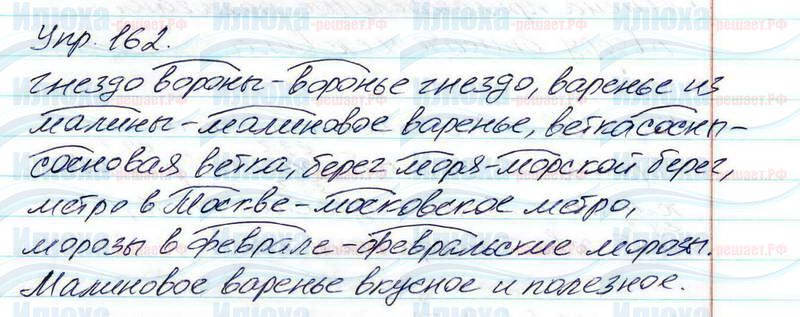 Упр. 162.
гнездо вороны - воронье гнездо, варенье из
малины - малиновое варенье, ветка сосны -
сосновая ветка, берег моря - морской берег,
метро в Москве - московское метро,
морозы в феврале - февральские морозы.
Малиновое варенье вкусное и полезное.